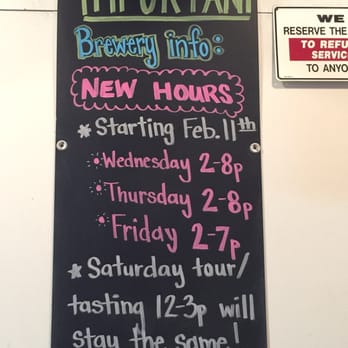 IMPORTANT
Brewery info:
NEW HOURS
* Starting Feb. 11th
Wednesday 2-8p
Thursday 2-8p
Friday 2-7p
* Saturday tour/
tasting 12-3p will
stay the same!
WE
RESERVE THE
TO REFU
SERVIC
TO ANYO